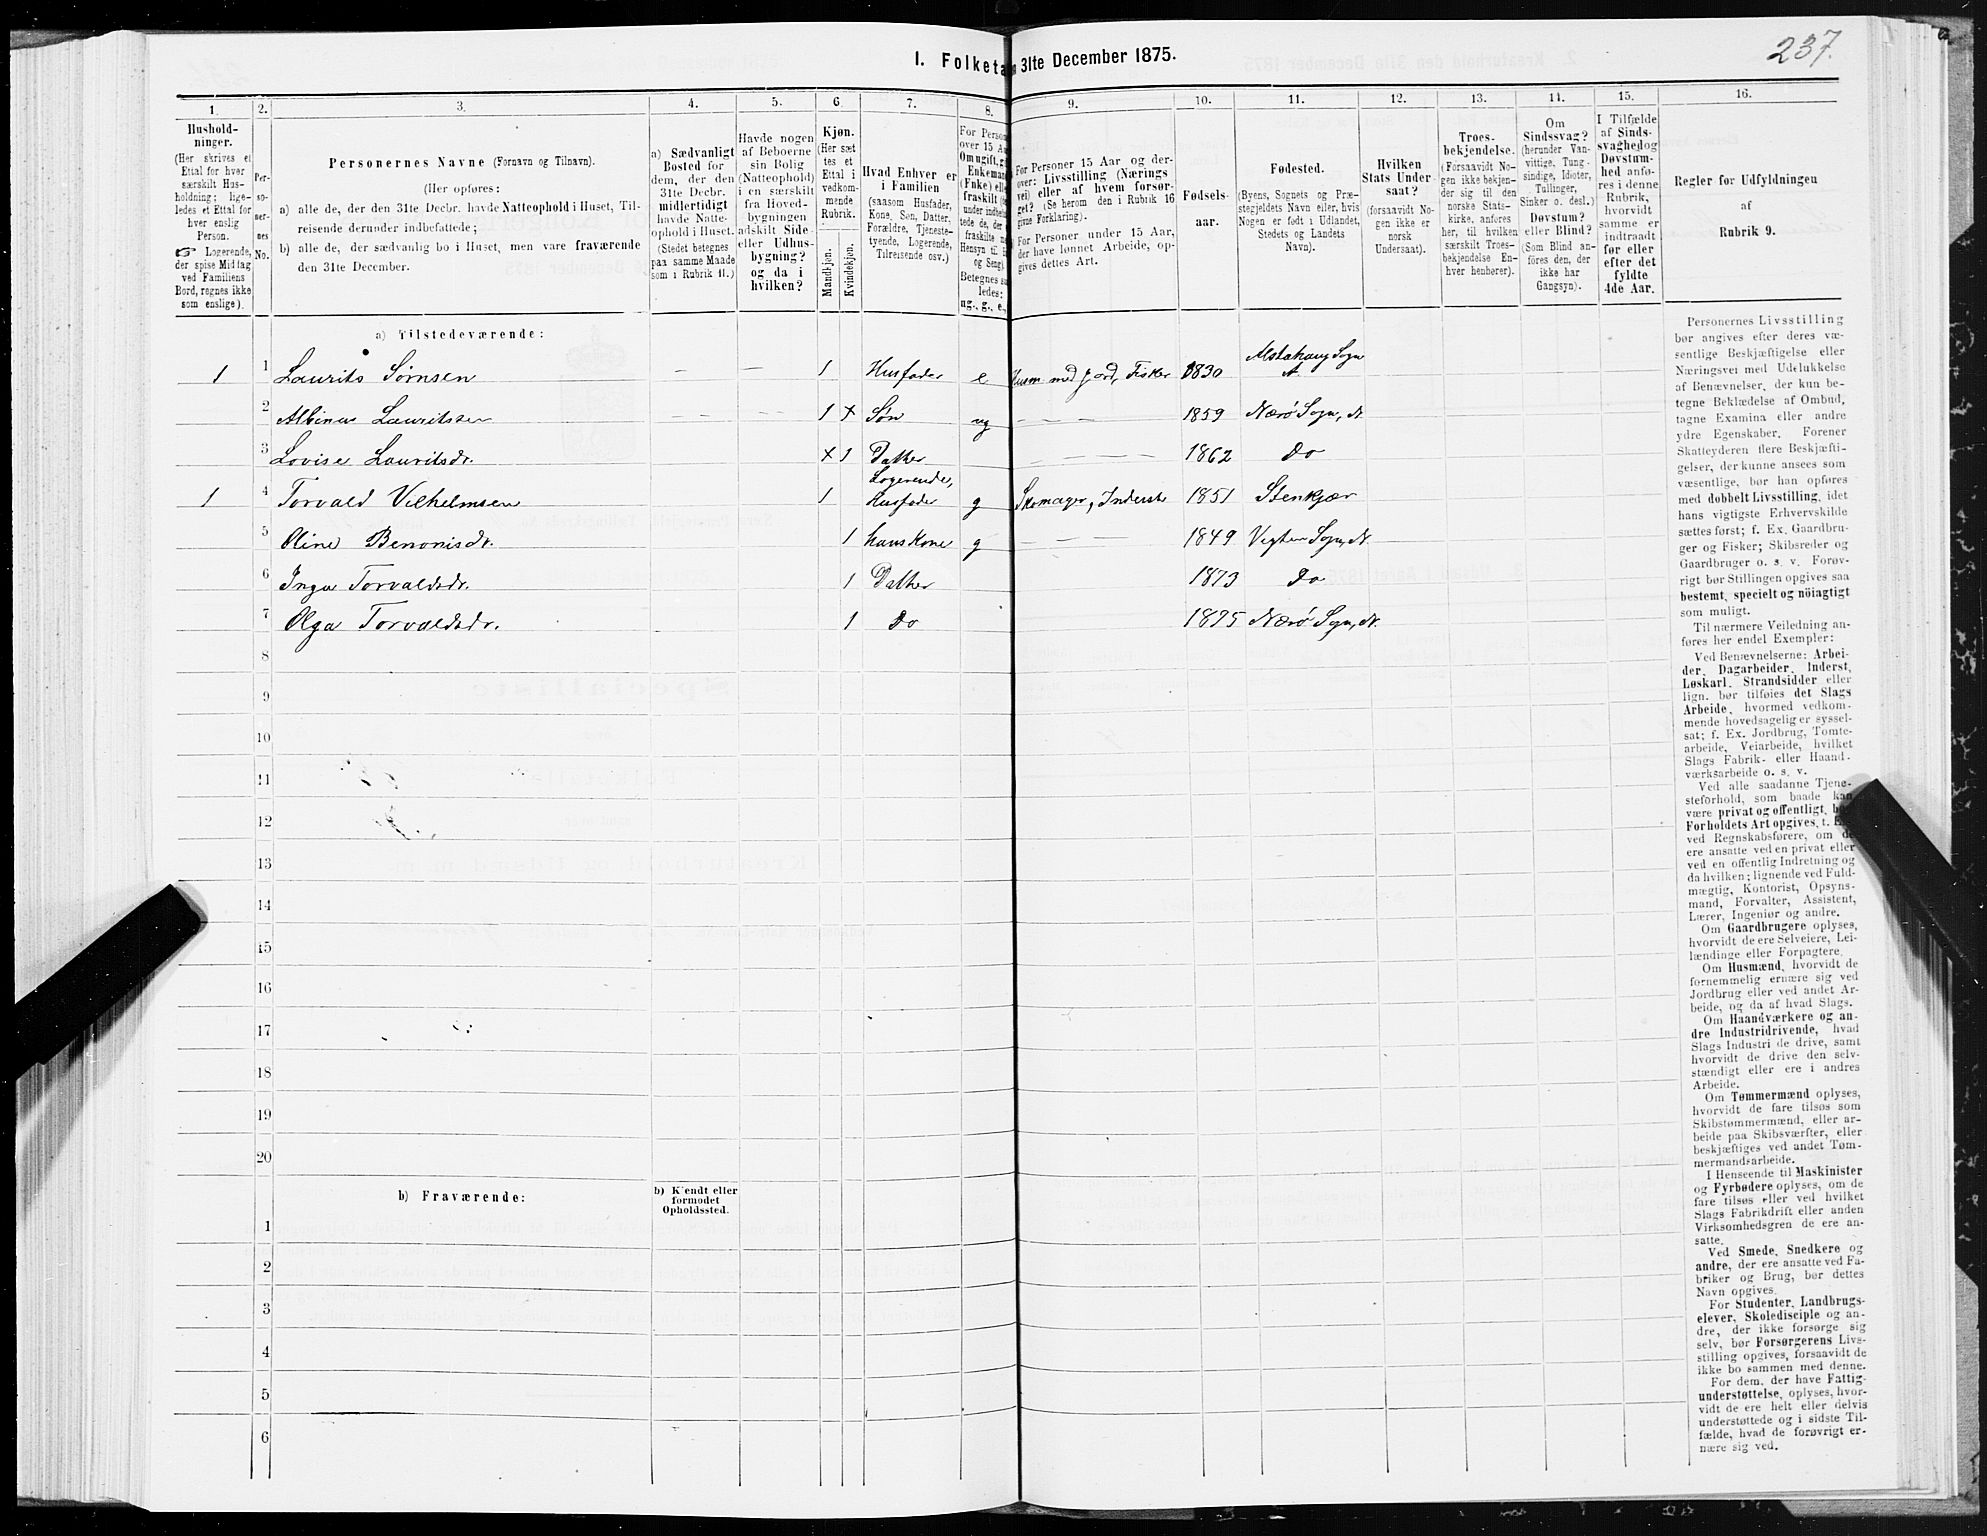 I. Folketa 31te December 1875.
237.
1. 2. 3. 4. 5. 6. 7. 8. 9. 10. 11. 12. 13. 14. 15. 16.
Hushold-
ninger.
(Her skrives et
Ettal for hver
særskilt Hus-
holdning; lige-
ledes et Ettal for
hver enslig
Person.
☞ Logerende,
der spise Middag
ved Familiens
Bord, regnes ikke
som enslige).
Per-
so-
ner-
nes
No.
Personernes Navne (Fornavn og Tilnavn).
(Her opføres:
a) alle de, der den 31te Decbr. havde Natteophold i Huset, Til-
reisende derunder indbefattede;
b) alle de, der sædvanlig bo i Huset, men vare fraværende
den 31te December.
a) Sædvanligt
Bosted for
dem, der den
31te Decbr.
midlertidigt
havde Natte-
ophold i Huset.
(Stedet betegnes
paa samme Maade
som i Rubrik 11.)
Havde nogen
af Beboerne
sin Bolig
(Natteophold)
i en særskilt
fra Hoved-
bygningen
adskilt Side-
eller Udhus-
bygning?
og da i
hvilken?
Kjøn.
(Her sæt-
tes et
Ettal i
vedkom-
mende
Rubrik.
Mandkjøn.
Kvindekjøn.
Hvad Enhver er
i Familien
(saasom Husfader,
Kone, Søn, Datter,
Forældre, Tjeneste-
tyende, Logerende,
Tilreisende osv.)
For Person
over 15 Aa
Om ugift, g
Enkeman
(Enke) elle
fraskilt
under indbe
tede de, der
fraskilte
Hensyn til
og Seng).
Betegnes saa
ledes:
ug., g., e.,
For Personer 15 Aar og der-
over: Livsstilling (Nærings-
vei) eller af hvem forsør-
get? (Se herom den i Rubrik 16
givne Forklaring).
For Personer under 15 Aar,
der have lønnet Arbeide, op-
gives dettes Art.
Fødsels-
aar.
Fødested.
(Byens, Sognets og Præ-
stegjeldets Navn eller, hvis
Nogen er født i Udlandet,
Stedets og Landets
Navn).
Hvilken
Stats Under-
saat?
(forsaavidt No-
gen ikke er
norsk
Undersaat).
Troes-
bekjendelse.
(Forsaavidt No-
gen ikke bekjen-
der sig til den
norske Stats-
kirke, anføres
her, til hvilken
særskilt Troes-
bekjendelse En-
hver henhører).
Om
Sindssvag?
(herunder Van-
vittige, Tung-
sindige, Idioter,
Tullinger,
Sinker o. desl.)
Døvstum?
eller Blind?
(Som Blind an-
føres den, der
ikke har
Gangsyn).
I Tilfælde
af Sinds-
svaghed og
Døvstum-
hed anfø-
res i denne
Rubrik,
hvorvidt
samme er
indtraadt
før eller
efter det
fyldte
4de Aar.
Regler for Udfyldningen
af
Rubrik 9.
a) Tilstedeværende:
1 1 Laurits Sørnsen — — 1 Husfader e Husm med Jord, Fisker 1830 Alstahaug Sogn N.
2 Albinus Lauritssen — — — — 1 + Søn ug — — — 1859 Nærø Sogn, N.
3 Lovise Lauritsdr. + 1 Datter — — — — 1862 Do
1 4 Torvald Vilhelmsen 1 Logerende, Husfader g Skomager, Inderst 1851 Stenkjær
5 Oline Benonisdr. 1 hans Kone g — — — 1849 Vegten Sogn, N.
6 Inga Torvaldsdr. 1 Datter 1873 Do
7 Olga Torvaldsdr. 1 Do 1875 Nærø Sogn, N.
8
9
10
11
12
13
14
15
16
17
18
19
20
b) Fraværende:
b) Kjendt eller
formodet
Opholdssted.
1
2
3
4
5
6
Personernes Livsstilling
bør angives efter deres væ-
sentlige Beskjæftigelse eller
Næringsvei med Udelukkelse
af Benævnelser, der kun be-
tegne Beklædelse af Ombud,
tagne Examina eller andre
ydre Egenskaber. Forener
Skatteyderen flere Beskjæfti-
gelser, der kunne ansees som
væsentlige, bør han opføres
med dobbelt Livsstilling, idet
hans vigtigste Erhvervskilde
sættes først; f. Ex. Gaardbru-
ger og Fisker; Skibsreder og
Gaardbruger o. s. v. Forøv-
rigt bør Stillingen opgives saa
bestemt, specielt og nöiagtigt
som muligt.
Til nærmere Veiledning an-
føres her endel Exempler:
Ved Benævnelserne: Arbei-
der, Dagarbeider, Inderst,
Løskarl, Strandsidder eller
lign. bør tilføies det Slags
Arbeide, hvormed vedkom-
mende hovedsagelig er syssel-
sat; f. Ex. Jordbrug, Tomte-
arbeide, Veiarbeide, hvilket
Slags Fabrik- eller Haand-
værksarbeide o. s. v.
Ved alle saadanne Tjene-
steforhold, som baade kan
være privat og offentligt, bør
Forholdets Art opgives, t. Ex.
ved Regnskabsførere, om de
ere ansatte ved en privat eller
ved en offentlig Indretning og
da hvilken; lignende ved Fuld-
mægtig, Kontorist, Opsyns-
mand, Forvalter, Assistent,
Lærer, Ingeniør og andre.
Om Gaardbrugere oplyses,
hvorvidt de ere Selveiere, Lei-
lændinge eller Forpagtere.
Om Husmænd, hvorvidt de
fornemmelig ernære sig ved
Jordbrug eller ved andet Ar-
beide, og da af hvad Slags.
Om Haandværkere og an-
dre Industridrivende, hvad
Slags Industri de drive, samt
hvorvidt de drive den selv-
stændigt eller ere i andres
Arbeide.
Om Tømmermænd oplyses,
hvorvidt de fare tilsøs som
Skibstømmermænd, eller ar-
beide paa Skibsværfter, eller
beskjæftiges ved andet Tøm-
mermandsarbeide.
I Henseende til Maskinister
og Fyrbødere oplyses, om de
fare tilsøs eller ved hvilket
Slags Fabrikdrift eller anden
Virksomhedsgren de ere an-
satte.
Ved Smede, Snedkere og
andre, der ere ansatte ved Fa-
briker og Brug, bør dettes
Navn opgives.
For Studenter, Landbrugs-
elever, Skoledisciple og an-
dre, der ikke forsørge sig
selv, bør Forsørgerens Livs-
stilling opgives, forsaavidt de
ikke bo sammen med denne.
For dem, der have Fattig-
understøttelse, oplyses, hvor-
vidt de ere helt eller delvis
understøttede og i sidste Til-
fælde, hvad de forøvrigt er-
nære sig ved.